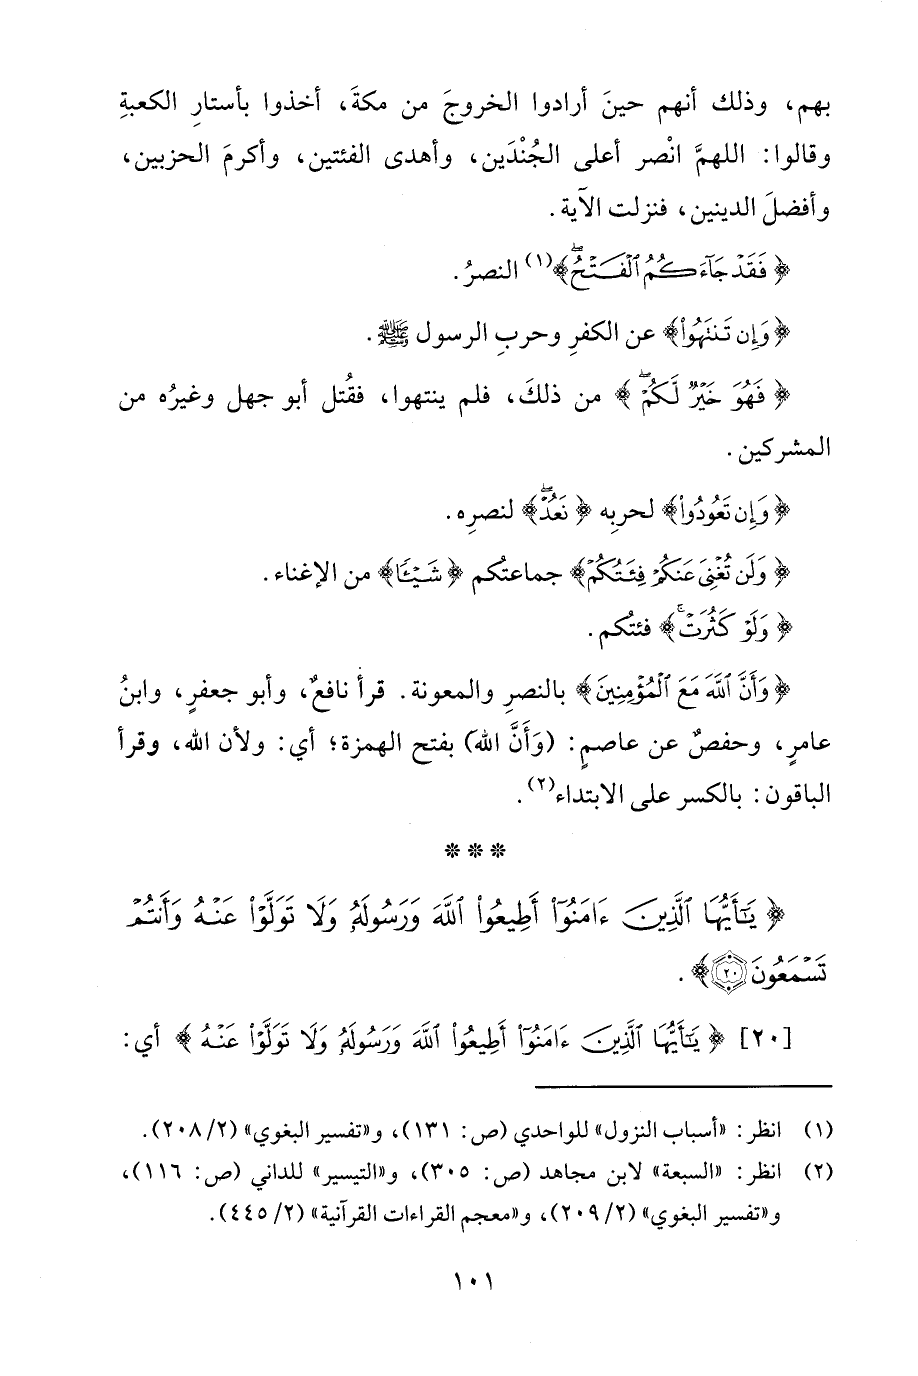 بهم، وذلك أنهم حينَ أرادوا الخروجَ من مكةَ، أخذوا بأستارِ الكعبةِ
وقالوا: اللهمَّ انْصر أعلى الجُنْدَين، وأهدى الفئتين، وأكرمَ الحزبين،
وأفضلَ الدينين، فنزلت الآية.
﴿ فَقَدْ جَآءَكُمُ ٱلْفَتْحُۖ ﴾(١) النصرُ.
﴿ وَإِن تَنتَهُواْ ﴾ عن الكفرِ وحربِ الرسول ﷺ.
﴿ فَهُوَ خَيْرٌ لَّكُمْۖ ﴾ من ذلكَ، فلم ينتهوا، فقُتل أبو جهل وغيرُه من
المشركين.
﴿ وَإِن تَعُودُواْ ﴾ لحربِه ﴿ نَعُدْۖ ﴾ لنصرِه.
﴿ وَلَن تُغْنِىَ عَنكُمْ فِئَتُكُمْ ﴾ جماعتُكم ﴿ شَيْـًٔا ﴾ من الإغناء.
﴿ وَلَوْ كَثُرَتْۚ ﴾ فئتُكم.
﴿ وَأَنَّ ٱللَّهَ مَعَ ٱلْمُؤْمِنِينَ ﴾ بالنصرِ والمعونة. قرأ نافعٌ، وأبو جعفرٍ، وابنُ
عامرٍ، وحفصٌ عن عاصمٍ: (وَأَنَّ اللهَ) بفتح الهمزة؛ أي: ولأن الله، وقرأ
الباقون: بالكسر على الابتداء(٢).
* * *
﴿ يَـٰٓأَيُّهَا ٱلَّذِينَ ءَامَنُوٓاْ أَطِيعُواْ ٱللَّهَ وَرَسُولَهُۥ وَلَا تَوَلَّوْاْ عَنْهُ وَأَنتُمْ
تَسْمَعُونَ ٢٠ ﴾.
[٢٠] ﴿ يَـٰٓأَيُّهَا ٱلَّذِينَ ءَامَنُوٓاْ أَطِيعُواْ ٱللَّهَ وَرَسُولَهُۥ وَلَا تَوَلَّوْاْ عَنْهُ ﴾ أي:
(١) انظر: «أسباب النزول» للواحدي (ص: ١٣١)، و«تفسير البغوي» (٢/ ٢٠٨).
(٢) انظر: «السبعة» لابن مجاهد (ص: ٣٠٥)، و«التيسير» للداني (ص: ١١٦)،
و«تفسير البغوي» (٢/ ٢٠٩)، و«معجم القراءات القرآنية» (٢/ ٤٤٥).
١٠١